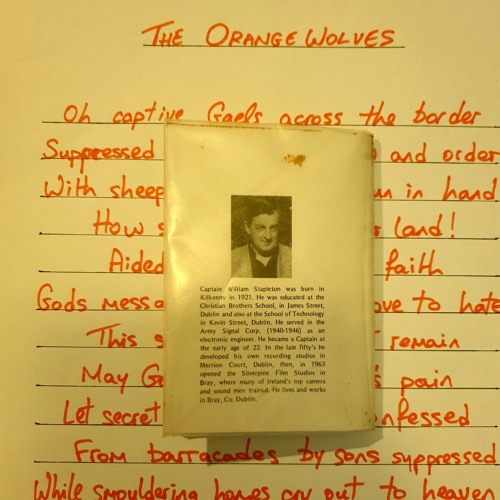 THE ORANGE WOLVES
Oh captive Gaels across the border
Suppressed and order
With sheep in hand
How land!
Aided faith
Gods messa to hate
This remain
May pain
Let secret nfessed
From barracades by sons suppressed
While smouldering homes cry out to heaven
Captain William Stapleton was born in
Kilkenny in 1921. He was educated at the
Christian Brothers School, in James Street,
Dublin and also at the School of Technology
in Kevin Street, Dublin. He served in the
Army Signal Corp. (1940-1946) as an
electronic engineer. He became a Captain at
the early age of 22. In the late fifty's he
developed his own recording studios in
Merrion Court, Dublin, then, in 1963
opened the Silverpine Film Studios in
Bray, where many of Ireland's top camera
and sound men trained. He lives and works
in Bray, Co. Dublin.